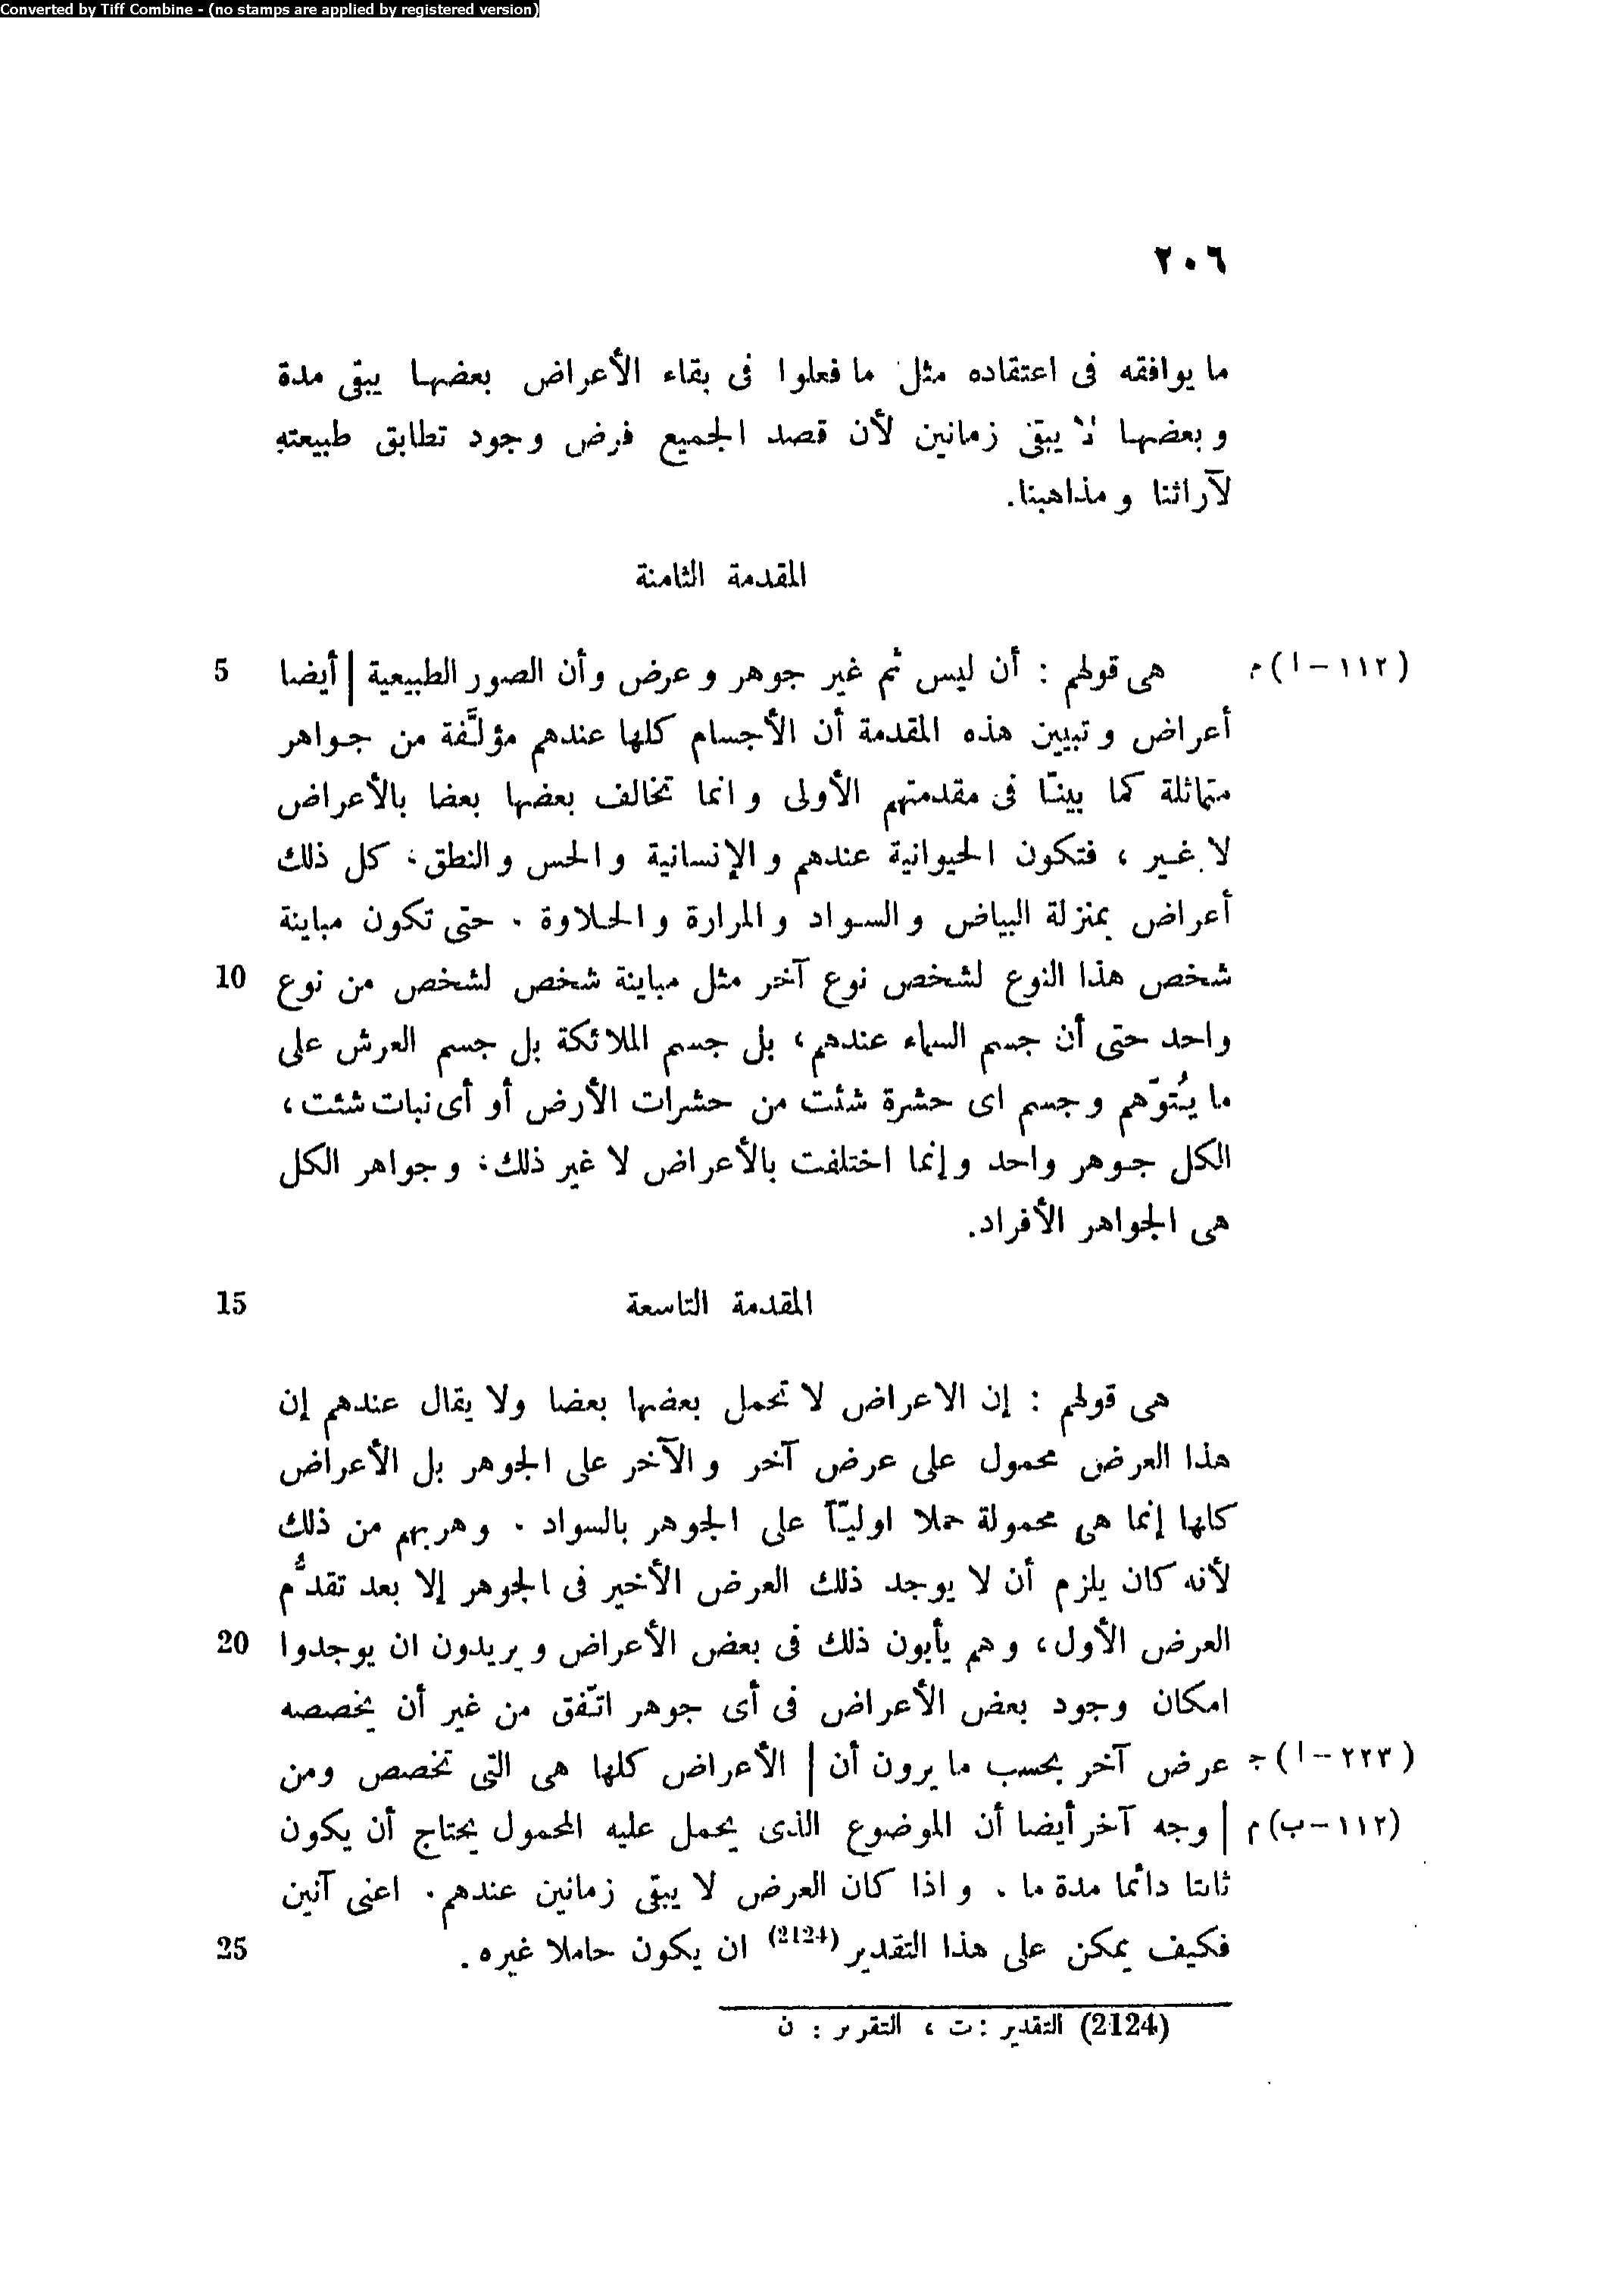 Converted by Tiff Combine - (no stamps are applied by registered version)
٢٠٦
ما يوافقه فى اعتقاده مثل ما فعلوا فى بقاء الأعراض بعضها يبقى مدة
و بعضها لا يبقى زمانين لأن قصد الجميع فرض وجود تطابق طبيعته
لآرائنا و مذاهبنا.
المقدمة الثامنة
(١١٢ – ا) م هى قولهم : أن ليس ثم غير جوهر و عرض وأن الصور الطبيعية | أيضا 5
أعراض و تبيين هذه المقدمة أن الأجسام كلها عندهم مؤلَّفة من جواهر
متماثلة كما بينّا فى مقدمتهم الأولى و انما تخالف بعضها بعضا بالأعراض
لا غير ، فتكون الحيوانية عندهم و الإنسانية و الحس و النطق ، كل ذلك
أعراض بمنزلة البياض و السواد و المرارة و الحلاوة . حتى تكون مباينة
شخص هذا النوع لشخص نوع آخر مثل مباينة شخص لشخص من نوع 10
واحد حتى أن جسم السماء عندهم ، بل جسم الملائكة بل جسم العرش على
ما يُتوّهم و جسم اى حشرة شئت من حشرات الأرض أو أى نبات شئت ،
الكل جوهر واحد و إنما اختلفت بالأعراض لا غير ذلك ، و جواهر الكل
هى الجواهر الأفراد.
المقدمة التاسعة 15
هى قولهم : إن الاعراض لا تحمل بعضها بعضا ولا يقال عندهم إن
هذا العرض محمول على عرض آخر و الآخر على الجوهر بل الأعراض
كلها إنما هى محمولة حملا اوليّاً على الجوهر بالسواد . و هربهم من ذلك
لأنه كان يلزم أن لا يوجد ذلك العرض الأخير فى الجوهر إلا بعد تقدُّم
العرض الأول ، و هم يأبون ذلك فى بعض الأعراض و يريدون ان يوجدوا 20
امكان وجود بعض الأعراض فى أى جوهر اتّفق من غير أن يخصصه
(٢٢٣ – ا) ج عرض آخر بحسب ما يرون أن | الأعراض كلها هى التى تخصص ومن
(١١٢ – ب) م | وجه آخر أيضا أن الموضوع الذى يحمل عليه المحمول يحتاج أن يكون
ثابتا دائما مدة ما . و اذا كان العرض لا يبقى زمانين عندهم . اعنى آنين
فكيف يمكن على هذا التقدير (2124) ان يكون حاملا غيره . 25
(2124) التقدير : ت ، التقرير : ن